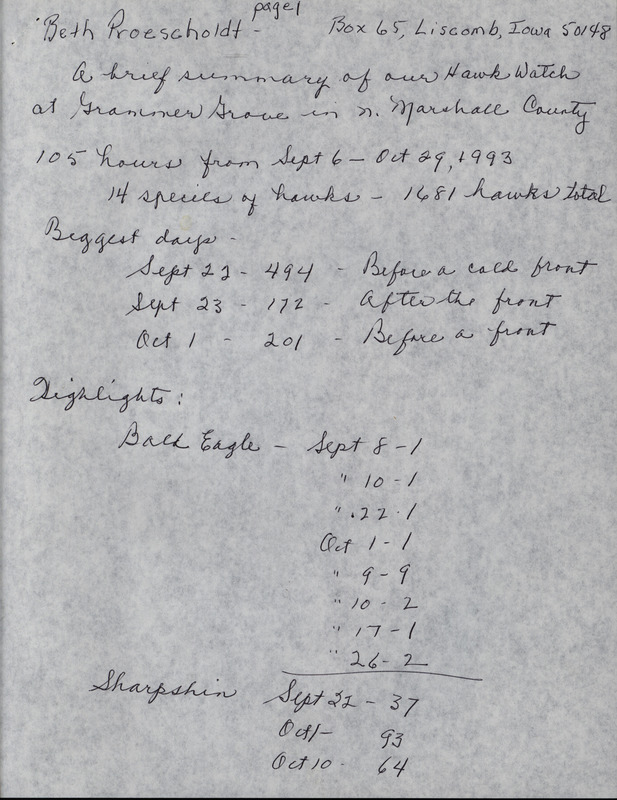 page 1
Beth Proescholdt - Box 65, Liscomb, Iowa 50148
A brief summary of our Hawk Watch
at Grammer Grove in n. Marshall County
105 hours from Sept 6 - Oct 29, 1993
14 species of hawks - 1681 hawks total
Biggest days -
Sept 22 - 494 - Before a cold front
Sept 23 - 172 - After the front
Oct 1 - 201 - Before a front
Highlights:
Bald Eagle - Sept 8 - 1
" 10 - 1
" 22 - 1
Oct 1 - 1
" 9 - 9
" 10 - 2
" 17 - 1
" 26 - 2
Sharpshin Sept 22 - 37
Oct 1 - 93
Oct 10 - 64